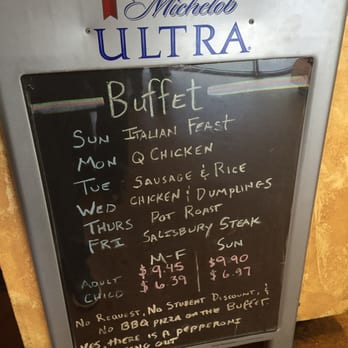 Michelob
ULTRA
Buffet
SUN ITALIAN FEAST
MON Q CHICKEN
TUE SAUSAGE & RICE
WED CHICKEN & DUMPLINGS
THURS POT ROAST
FRI SALISBURY STEAK
M-F SUN
ADULT $9.45 $9.90
CHILD $6.39 $6.97
NO REQUEST, NO STUDENT DISCOUNT, &
NO BBQ PIZZA ON THE BUFFET.
YES, THERE IS A PEPPERONI
OUT